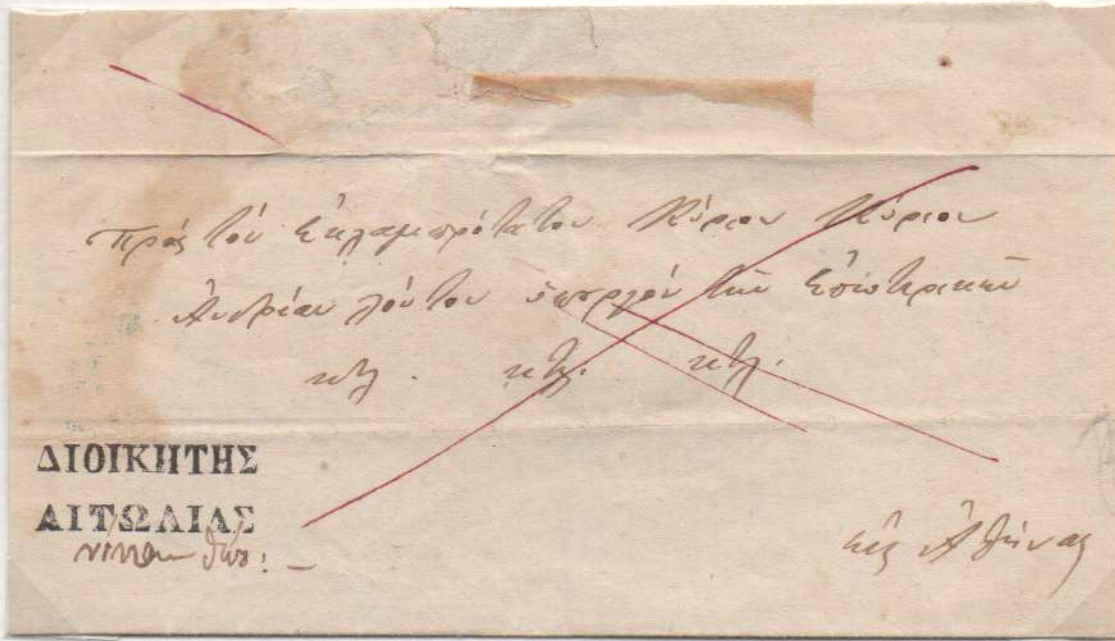 Πρὸς τὸν Ἐκλαμπρότατον Κύριον Κύριον
Ἀνδρέαν Λόντον ὑπουργὸν τῶν Ἐσωτερικῶν
κτλ. κτλ. κτλ.
ΔΙΟΙΚΗΤΗΣ
ΑΙΤΩΛΙΑΣ
εἰς Ἀθήνας